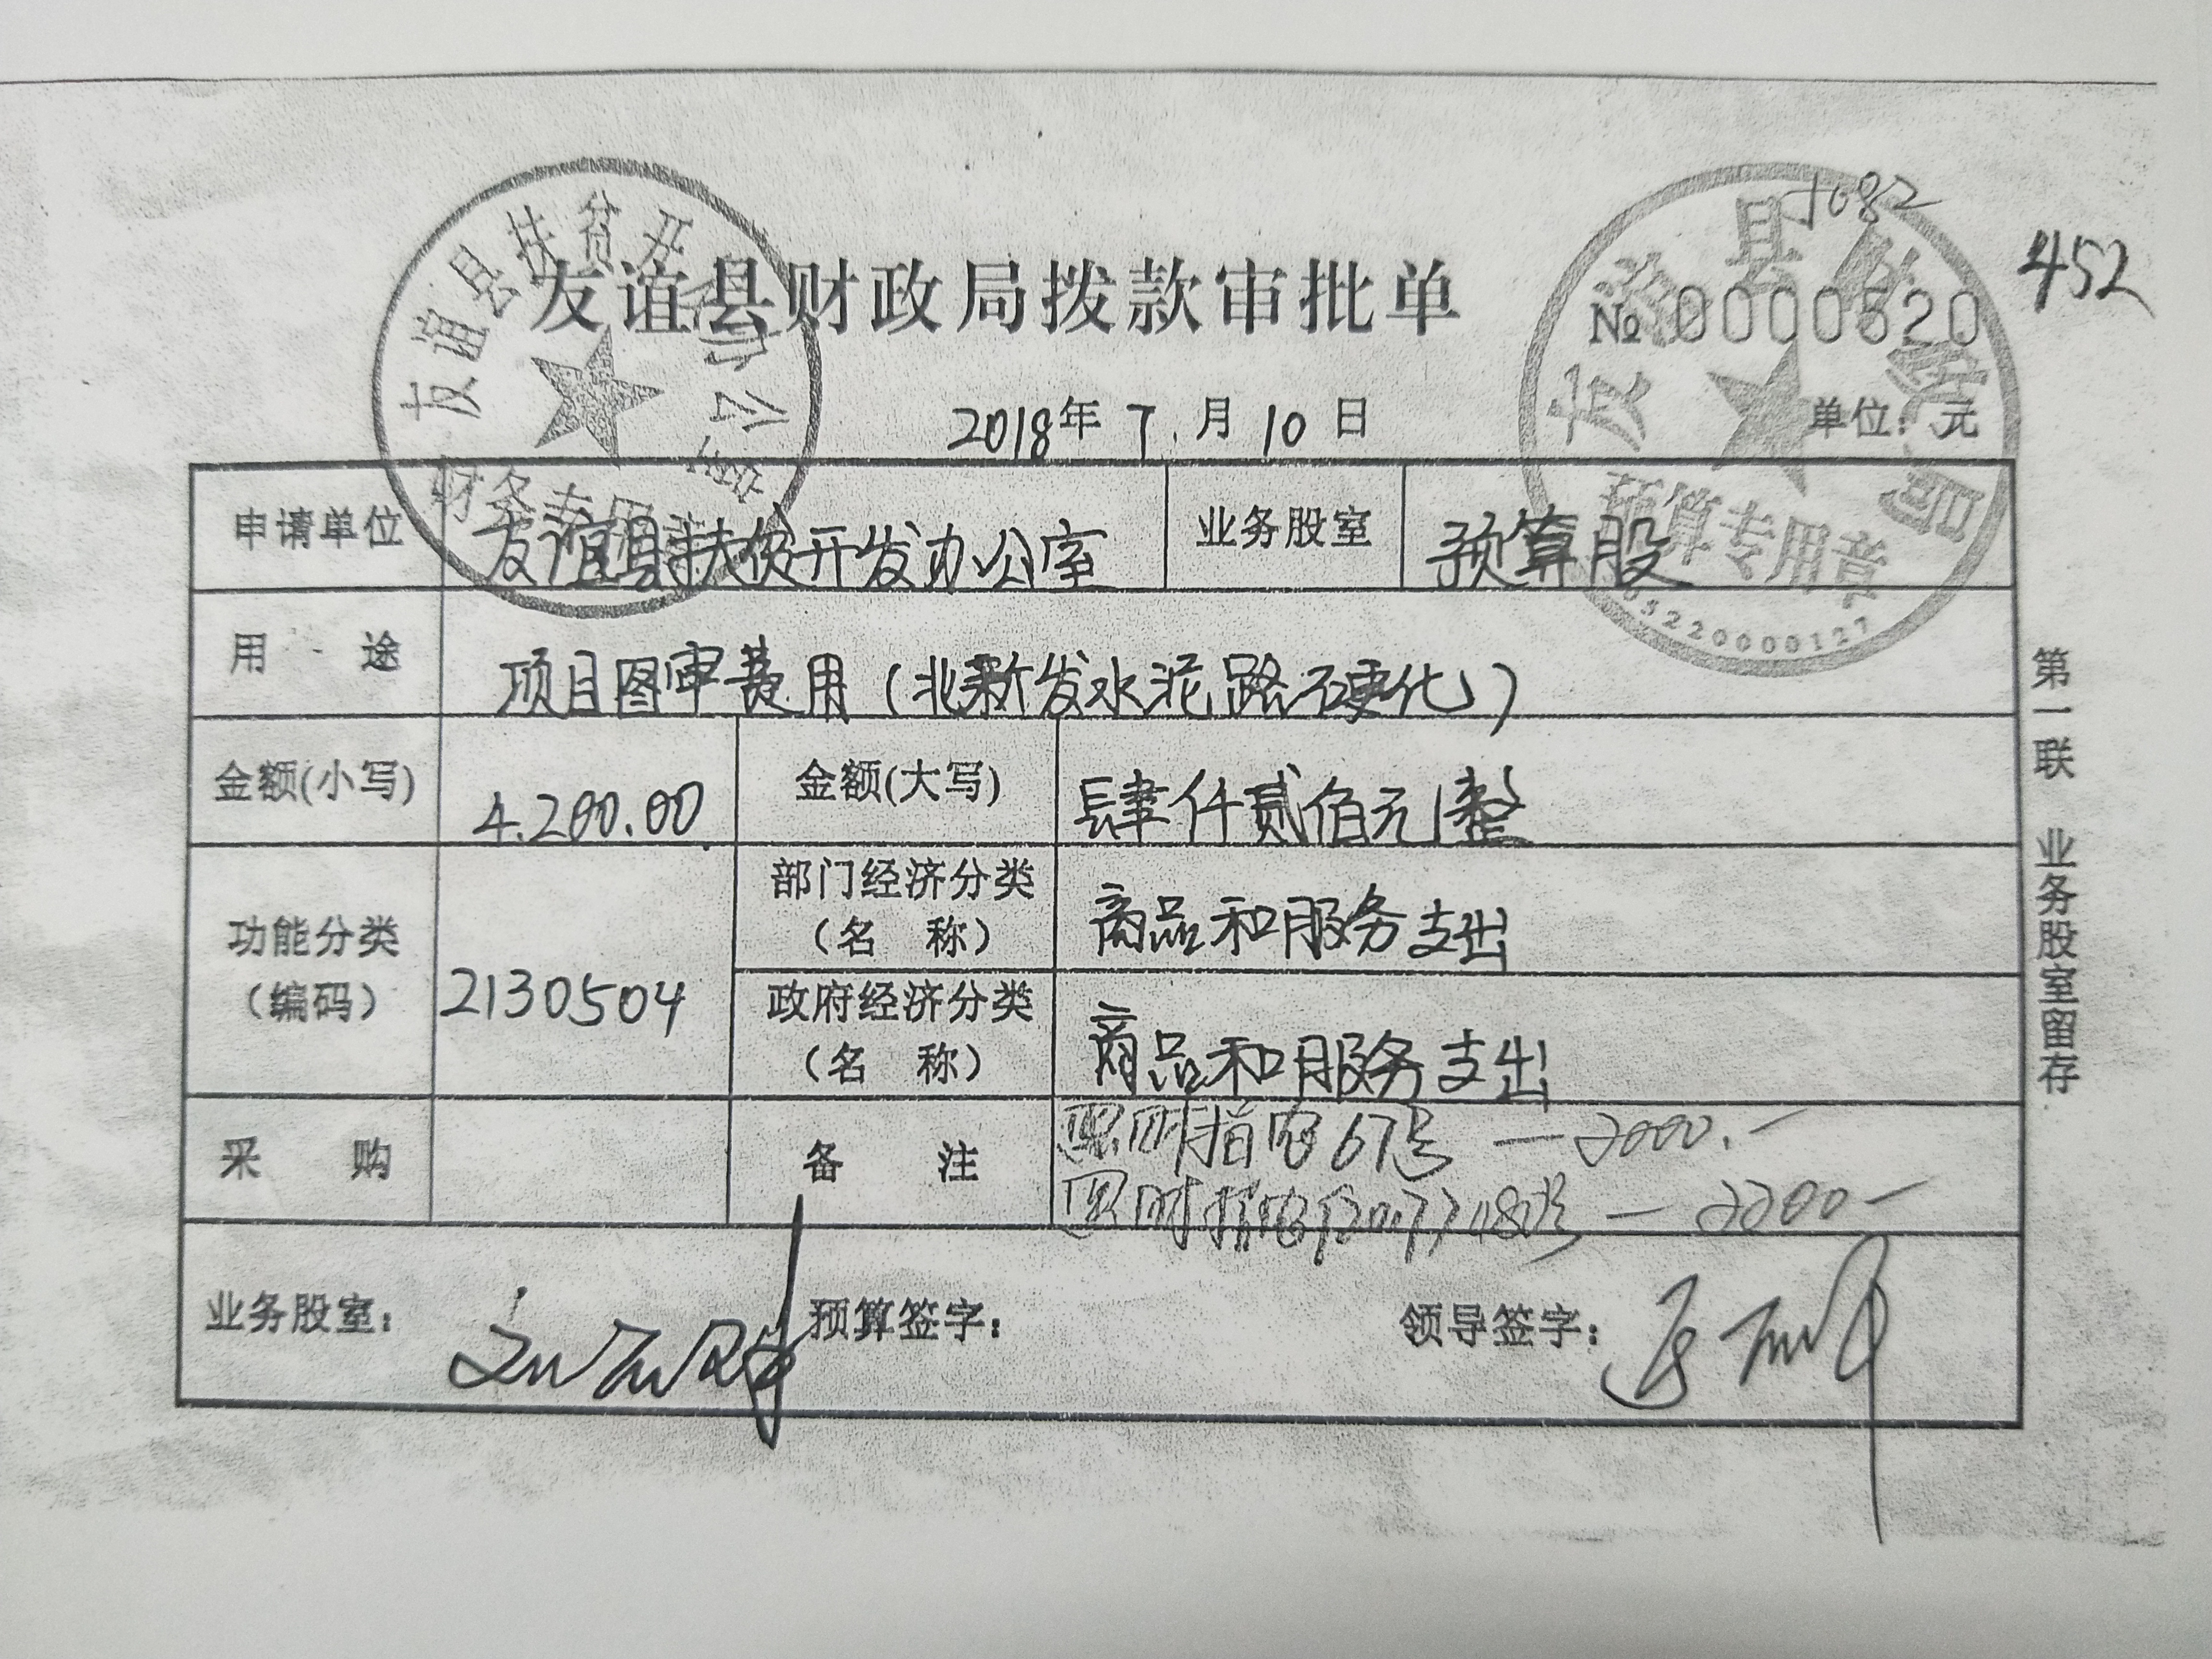 1082
452
友谊县财政局拨款审批单
№ 0000620
2018年 7 月 10 日
单位：元
友谊县扶贫开发办公室
财务专用章
友谊县财政局
预算专用章
05220000127
申请单位 友谊县扶贫开发办公室 业务股室 预算股
用 途 项目图审费用（北新发水泥路硬化）
金额(小写) 4.200.00 金额(大写) 肆仟贰佰元整
功能分类（编码） 2130504
部门经济分类（名 称） 商品和服务支出
政府经济分类（名 称） 商品和服务支出
采 购
备 注
67号 — 2000.—
— 2200 —
业务股室： 预算签字： 领导签字：
第一联 业务股室留存